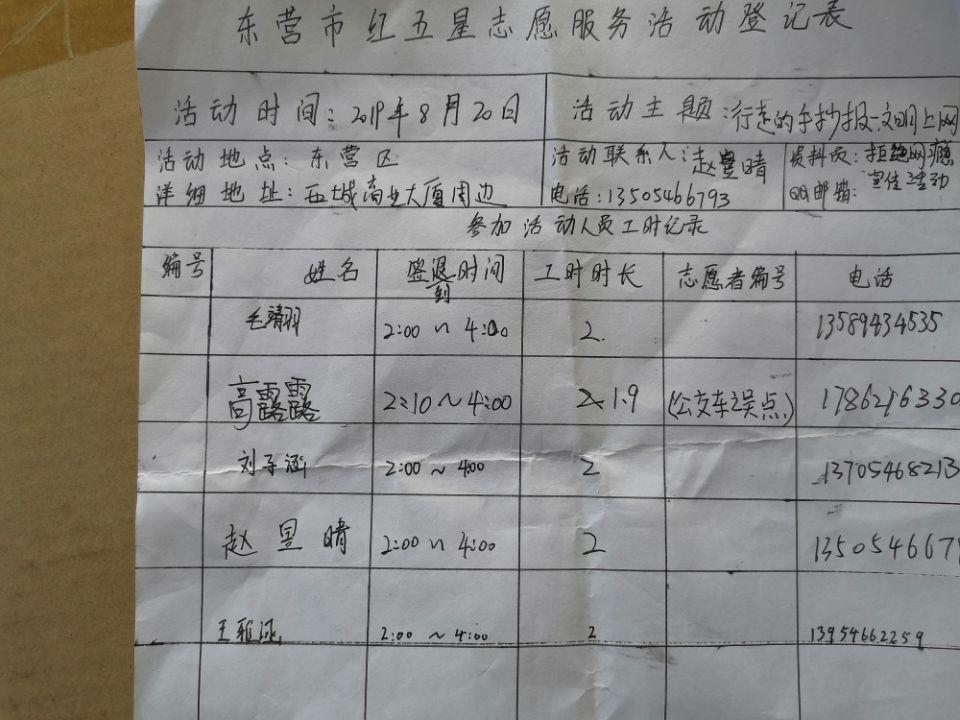 东营市红五星志愿服务活动登记表
活动时间：2019年8月20日 活动主题：行走的手抄报-文明上网
活动地点：东营区 活动联系人：赵昱晴 资料员：拒绝网瘾
详细地址：西城商业大厦周边 电话：13505466793 QQ邮箱： 宣传活动
参加活动人员工时记录
编号 姓名 签退时间 工时时长 志愿者编号 电话
到
毛靖羽 2:00～4:00 2 13589434535
高露露 2:10～4:00 1.9 (公交车误点) 1786216330
刘子涵 2:00～4:00 2 13705468213
赵昱晴 2:00～4:00 2 135054667
王雅涵 2:00～4:00 2 13954662259